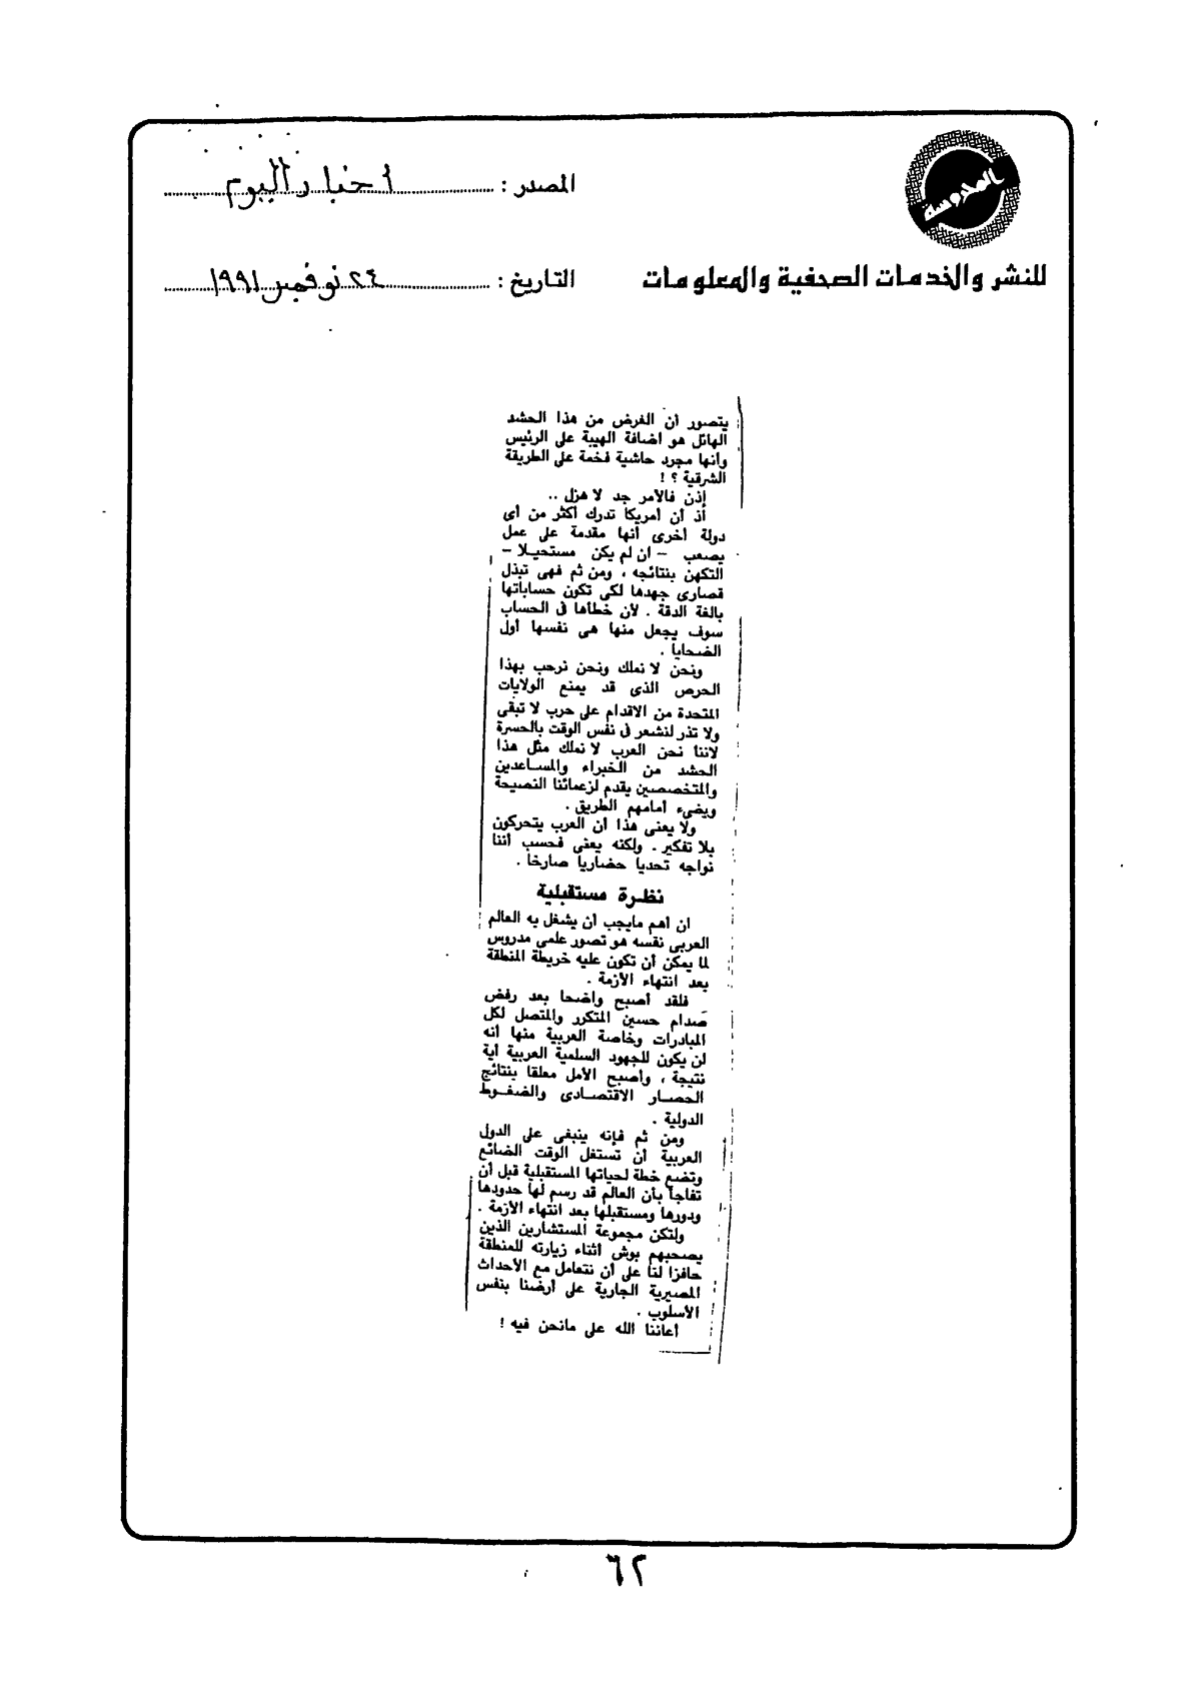 المحروسة
للنشر والخدمات الصحفية والمعلومات
المصدر : اخبار اليوم
التاريخ : ٢٤ نوفمبر ١٩٩١
يتصور أن الغرض من هذا الحشد
الهائل هو اضافة الهيبة على الرئيس
وأنها مجرد حاشية فخمة على الطريقة
الشرقية ؟ !
إذن فالأمر جد لا هزل ..
أذ أن أمريكا تدرك أكثر من أى
دولة أخرى أنها مقدمة على عمل
يصعب - ان لم يكن مستحيلا -
التكهن بنتائجه ، ومن ثم فهى تبذل
قصارى جهدها لكى تكون حساباتها
بالغة الدقة . لأن خطأها فى الحساب
سوف يجعل منها هى نفسها أول
الضحايا .
ونحن لا نملك ونحن نرحب بهذا
الحرص الذى قد يمنع الولايات
المتحدة من الاقدام على حرب لا تبقى
ولا تذر لنشعر فى نفس الوقت بالحسرة
لاننا نحن العرب لا نملك مثل هذا
الحشد من الخبراء والمساعدين
والمتخصصين يقدم لزعمائنا النصيحة
ويضىء أمامهم الطريق .
ولا يعنى هذا أن العرب يتحركون
بلا تفكير . ولكنه يعنى فحسب أننا
نواجه تحديا حضاريا صارخا .
نظرة مستقبلية
ان أهم مايجب أن يشغل به العالم
العربى نفسه هو تصور علمى مدروس
لما يمكن أن تكون عليه خريطة المنطقة
بعد انتهاء الأزمة .
فلقد أصبح واضحا بعد رفض
صدام حسين المتكرر والمتصل لكل
المبادرات وخاصة العربية منها أنه
لن يكون للجهود السلمية العربية أية
نتيجة ، وأصبح الأمل معلقا بنتائج
الحصار الاقتصادى والضغوط
الدولية .
ومن ثم فإنه ينبغى على الدول
العربية أن تستغل الوقت الضائع
وتضع خطة لحياتها المستقبلية قبل أن
تفاجأ بأن العالم قد رسم لها حدودها
ودورها ومستقبلها بعد انتهاء الأزمة .
ولتكن مجموعة المستشارين الذين
يصحبهم بوش أثناء زيارته للمنطقة
حافزا لنا على أن نتعامل مع الأحداث
المصيرية الجارية على أرضنا بنفس
الأسلوب .
أعاننا الله على مانحن فيه !
٦٢